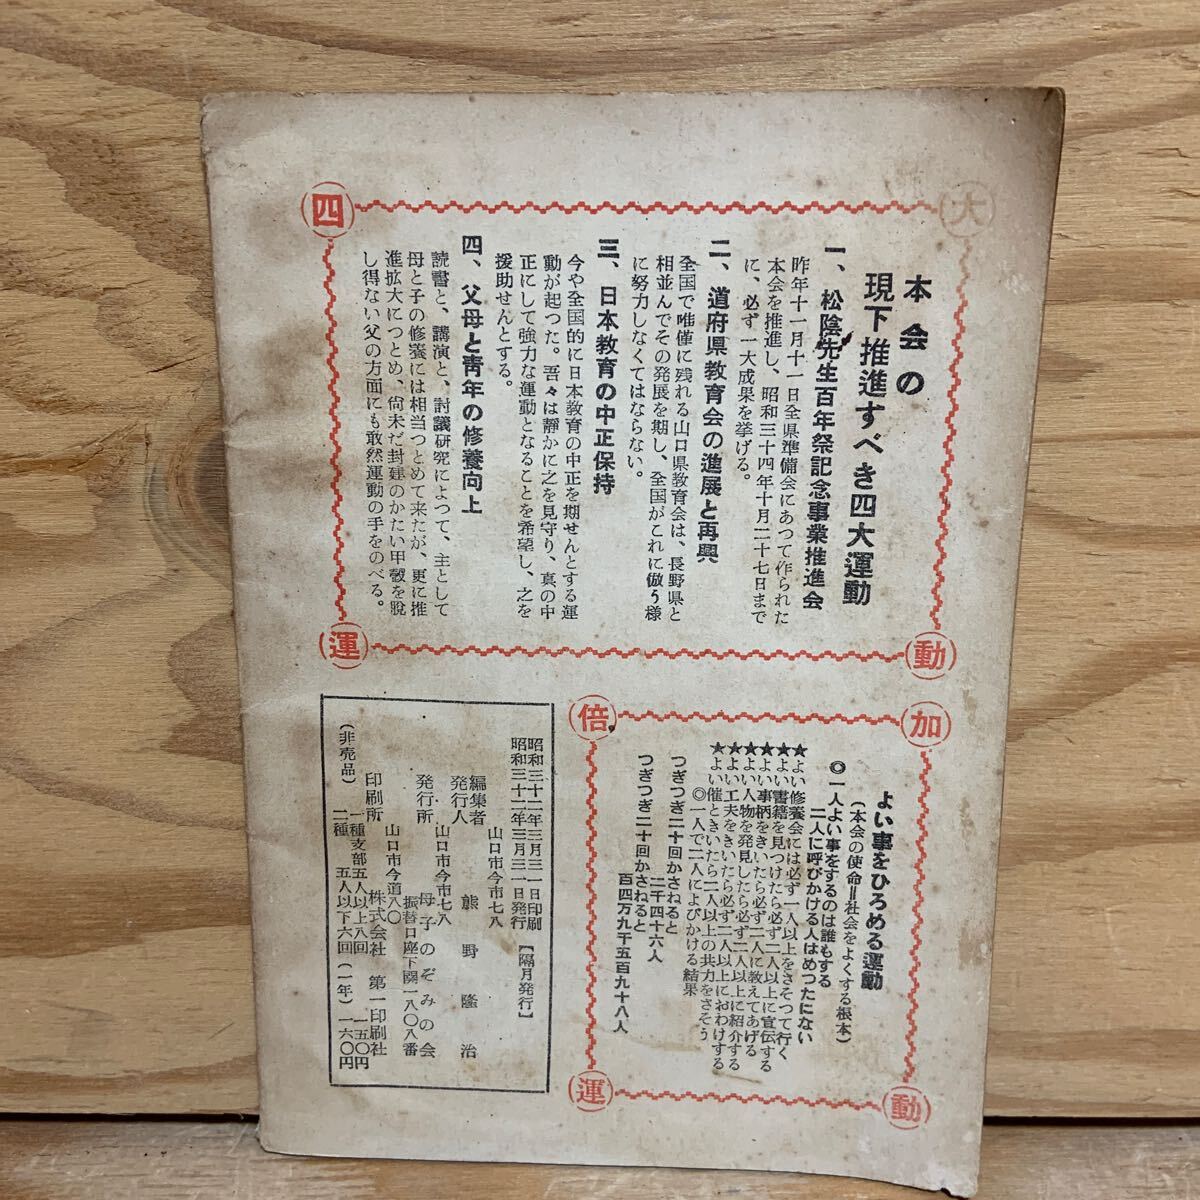 四
大
運
動
本会の
現下推進すべき四大運動
一、松陰先生百年祭記念事業推進会
昨年十一月十一日全県準備会にあつて作られた
本会を推進し、昭和三十四年十月二十七日まで
に、必ず一大成果を挙げる。
二、道府県教育会の進展と再興
全国で唯僅に残れる山口県教育会は、長野県と
相並んでその発展を期し、全国がこれに倣う様
に努力しなくてはならない。
三、日本教育の中正保持
今や全国的に日本教育の中正を期せんとする運
動が起つた。吾々は静かに之を見守り、真の中
正にして強力な運動となることを希望し、之を
援助せんとする。
四、父母と青年の修養向上
読書と、講演と、討議研究によつて、主として
母と子の修養には相当つとめて来たが、更に推
進拡大につとめ、尚未だ封建のかたい甲殻を脱
し得ない父の方面にも敢然運動の手をのべる。
倍
加
運
動
よい事をひろめる運動
(本会の使命=社会をよくする根本)
◎一人よい事をするのは誰もする
二人に呼びかける人はめつたにない
★よい修養会には必ず一人以上をさそつて行く
★よい書籍を見つけたら必ず二人以上に宣伝する
★よい事柄をきいたら必ず二人に教えてあげる
★よい人物を発見したら必ず二人以上に紹介する
★よい工夫をきいたら必ず二人以上におわけする
★よい催ときいたら二人以上の共力をさそう
◎一人で二人によびかける結果
つぎつぎ二十回かさねると
二千四十六人
つぎつぎ二十回かさねると
百四万九千五百九十八人
昭和三十二年三月三一日印刷
昭和三十二年三月三一日発行
【隔月発行】
山口市今市七八
編集者
発行人
熊野隆治
山口市今市七八
発行所
母子のぞみの会
振替口座下関一八〇八番
山口市今道八〇
印刷所
株式会社 第一印刷社
一種支部五人以上八回 一五〇円
二種 五人以下六回(一年)一六〇円
(非売品)